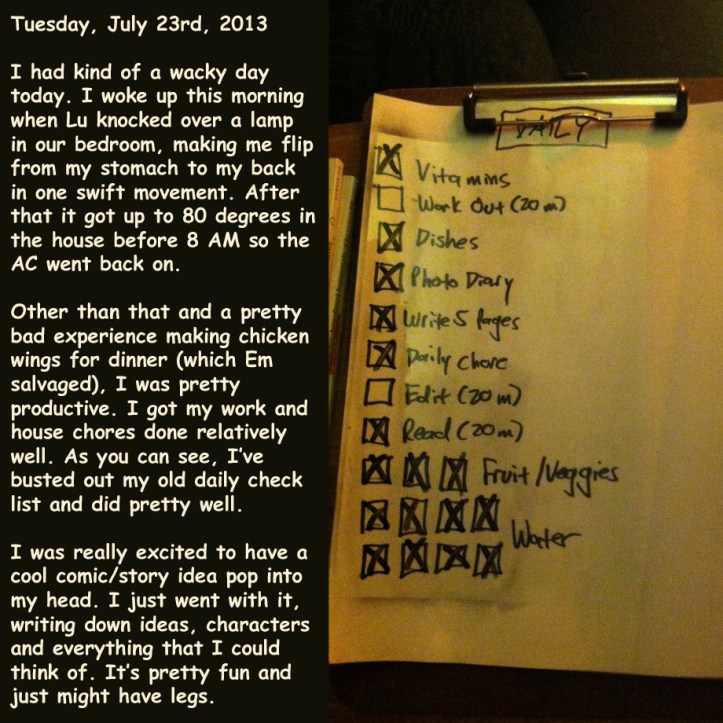 Tuesday, July 23rd, 2013
I had kind of a wacky day
today. I woke up this morning
when Lu knocked over a lamp
in our bedroom, making me flip
from my stomach to my back
in one swift movement. After
that it got up to 80 degrees in
the house before 8 AM so the
AC went back on.
Other than that and a pretty
bad experience making chicken
wings for dinner (which Em
salvaged), I was pretty
productive. I got my work and
house chores done relatively
well. As you can see, I've
busted out my old daily check
list and did pretty well.
I was really excited to have a
cool comic/story idea pop into
my head. I just went with it,
writing down ideas, characters
and everything that I could
think of. It's pretty fun and
just might have legs.
DAILY
Vitamins
Work Out (20 m)
Dishes
Photo Diary
Write 5 Pages
Daily Chore
Edit (20 m)
Read (20 m)
Fruit/Veggies
Water